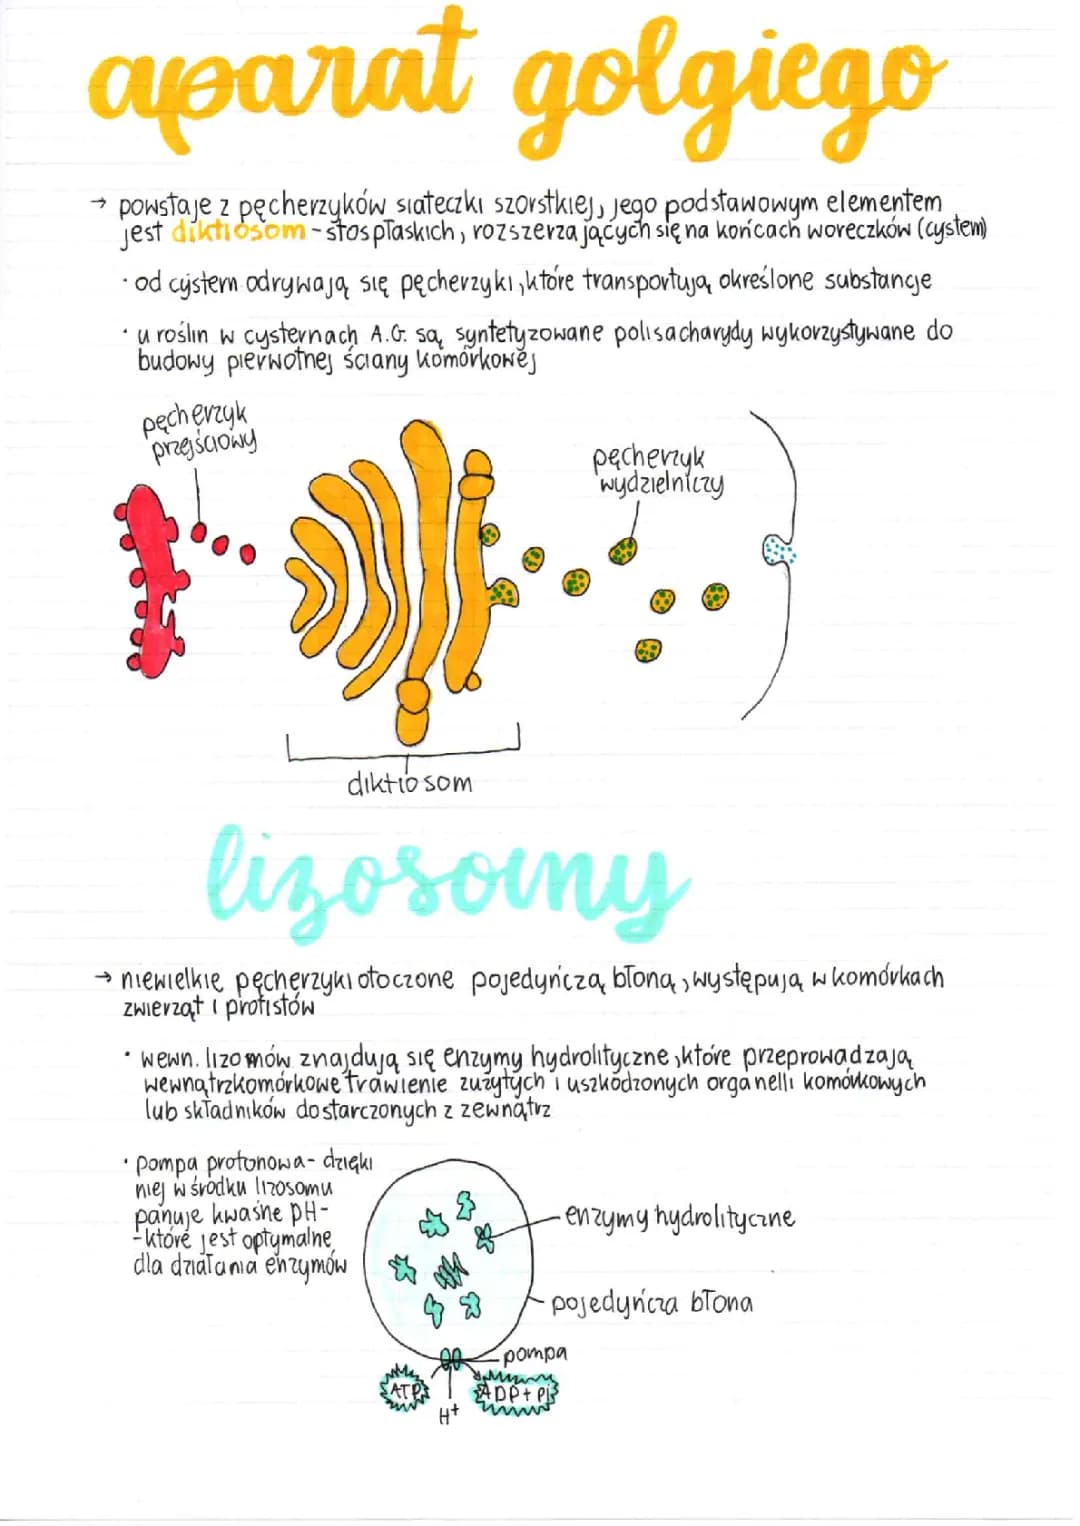 aparat golgiego
→ powstaje z pęcherzyków siateczki szorstkiej, jego podstawowym elementem
jest diktiosom - stos płaskich, rozszerzających się na końcach woreczków (cystern)
· od cystern odrywają się pęcherzyki, które transportują określone substancje
· u roślin w cysternach A.G. są syntetyzowane polisacharydy wykorzystywane do
budowy pierwotnej ściany komórkowej
pęcherzyk
przejściowy
pęcherzyk
wydzielniczy
diktiosom
lizosomy
→ niewielkie pęcherzyki otoczone pojedyńczą błoną, występują w komórkach
zwierząt i protistów
· wewn. lizomów znajdują się enzymy hydrolityczne, które przeprowadzają
wewnątrzkomórkowe trawienie zużytych i uszkodzonych organelli komórkowych
lub składników dostarczonych z zewnątrz
· pompa protonowa - dzięki
niej w środku lizosomu
panuje kwaśne pH -
- które jest optymalne
dla działania enzymów
enzymy hydrolityczne
pojedyńcza błona
pompa
ATP
ADP + Pi
H⁺